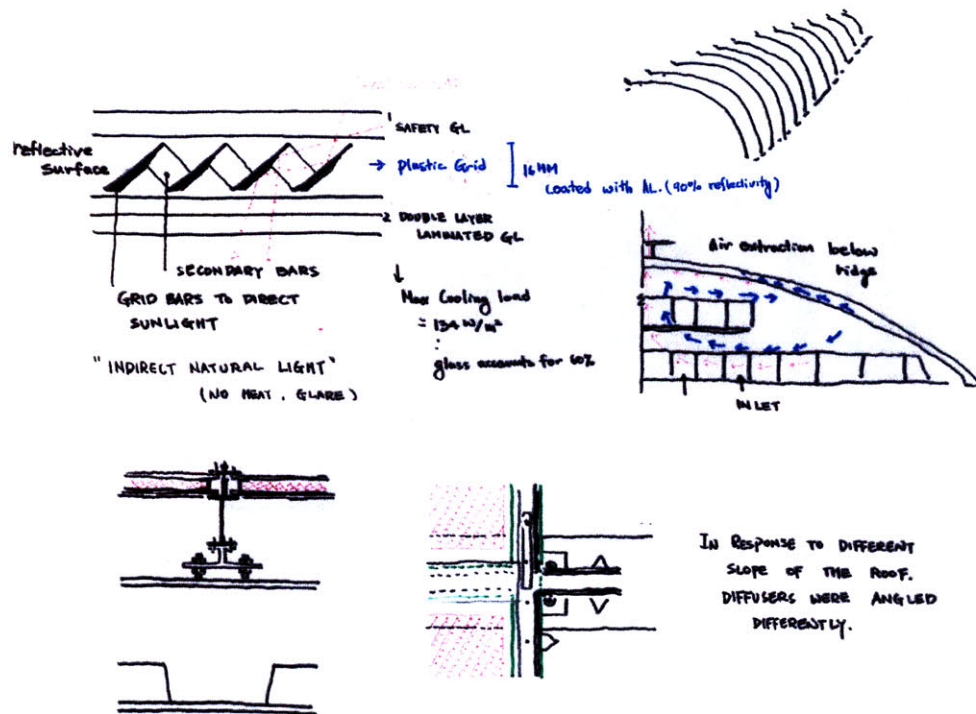 reflective
Surface
1 SAFETY GL
→ plastic Grid
16MM
coated with AL. (90% reflectivity)
2 DOUBLE LAYER
LAMINATED GL
SECONDARY BARS
GRID BARS TO DIRECT
SUNLIGHT
"INDIRECT NATURAL LIGHT"
(NO HEAT, GLARE)
Max Cooling load
= 134 W/m²
:
glass accounts for 60%
Air extraction below
ridge
INLET
IN RESPONSE TO DIFFERENT
SLOPE OF THE ROOF.
DIFFUSERS WERE ANGLED
DIFFERENTLY.